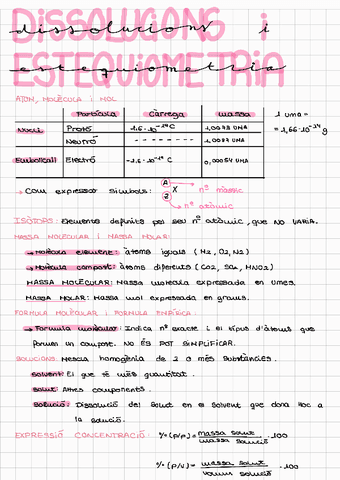 DISSOLUCIONS I
dissolucions i
ESTEQUIOMETRIA
estequiometria
ÀTOM, MOLÈCULA I MOL
Partícula Càrrega massa
Nucli Protó 1,6·10⁻¹⁹ C 1,0073 UMA
Neutró --------- 1,0087 UMA
Embolcall Electró -1,6·10⁻¹⁹ C 0,00054 UMA
1 uma =
= 1,66·10⁻²⁴ g
→ Com expressar símbols: A X Z
nº màssic
nº atòmic
ISÒTOPS: Elements definits pel seu nº atòmic, que NO VARIA.
MASSA MOLECULAR I MASSA MOLAR:
→ Molècula element: àtoms iguals (H2, O2, N2)
→ Molècula compost: àtoms diferents (CO2, SO2, HNO2)
MASSA MOLECULAR: Massa molècula expressada en umes.
MASSA MOLAR: Massa mol expressada en grams.
FORMULA MOLECULAR I FORMULA EMPÍRICA.
→ Formula molecular: Indica nº exacte i el tipus d'àtoms que
formen un compost. NO ÉS POT SIMPLIFICAR.
SOLUCIONS: Mescla homogènia de 2 o més substàncies.
solvent: El que té més quantitat.
solut: Altres components.
solució: Dissolució del solut en el solvent que dona lloc a
la solució.
EXPRESSIÓ CONCENTRACIÓ: %(p/p) = massa solut / massa solució · 100
%(p/v) = massa solut / volum solució · 100